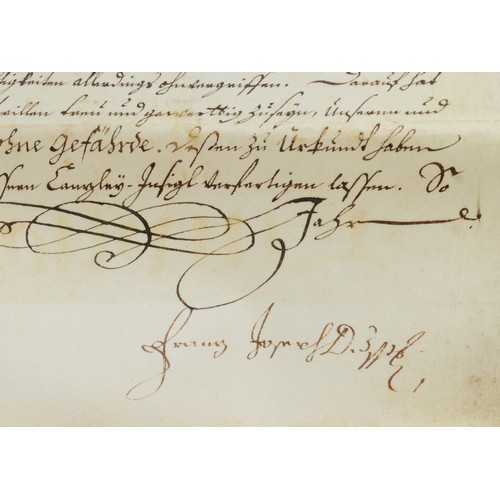 tigkeiten allerdings ohnvergriffen. Darauf hat
willen treu und gewerttig zuseyn, Unserm und
ohne Gefährde. Dessen zu Urkundt haben
ssern Cantzley-Insigl verfertigen lassen. So
Jahr
Franz Joseph